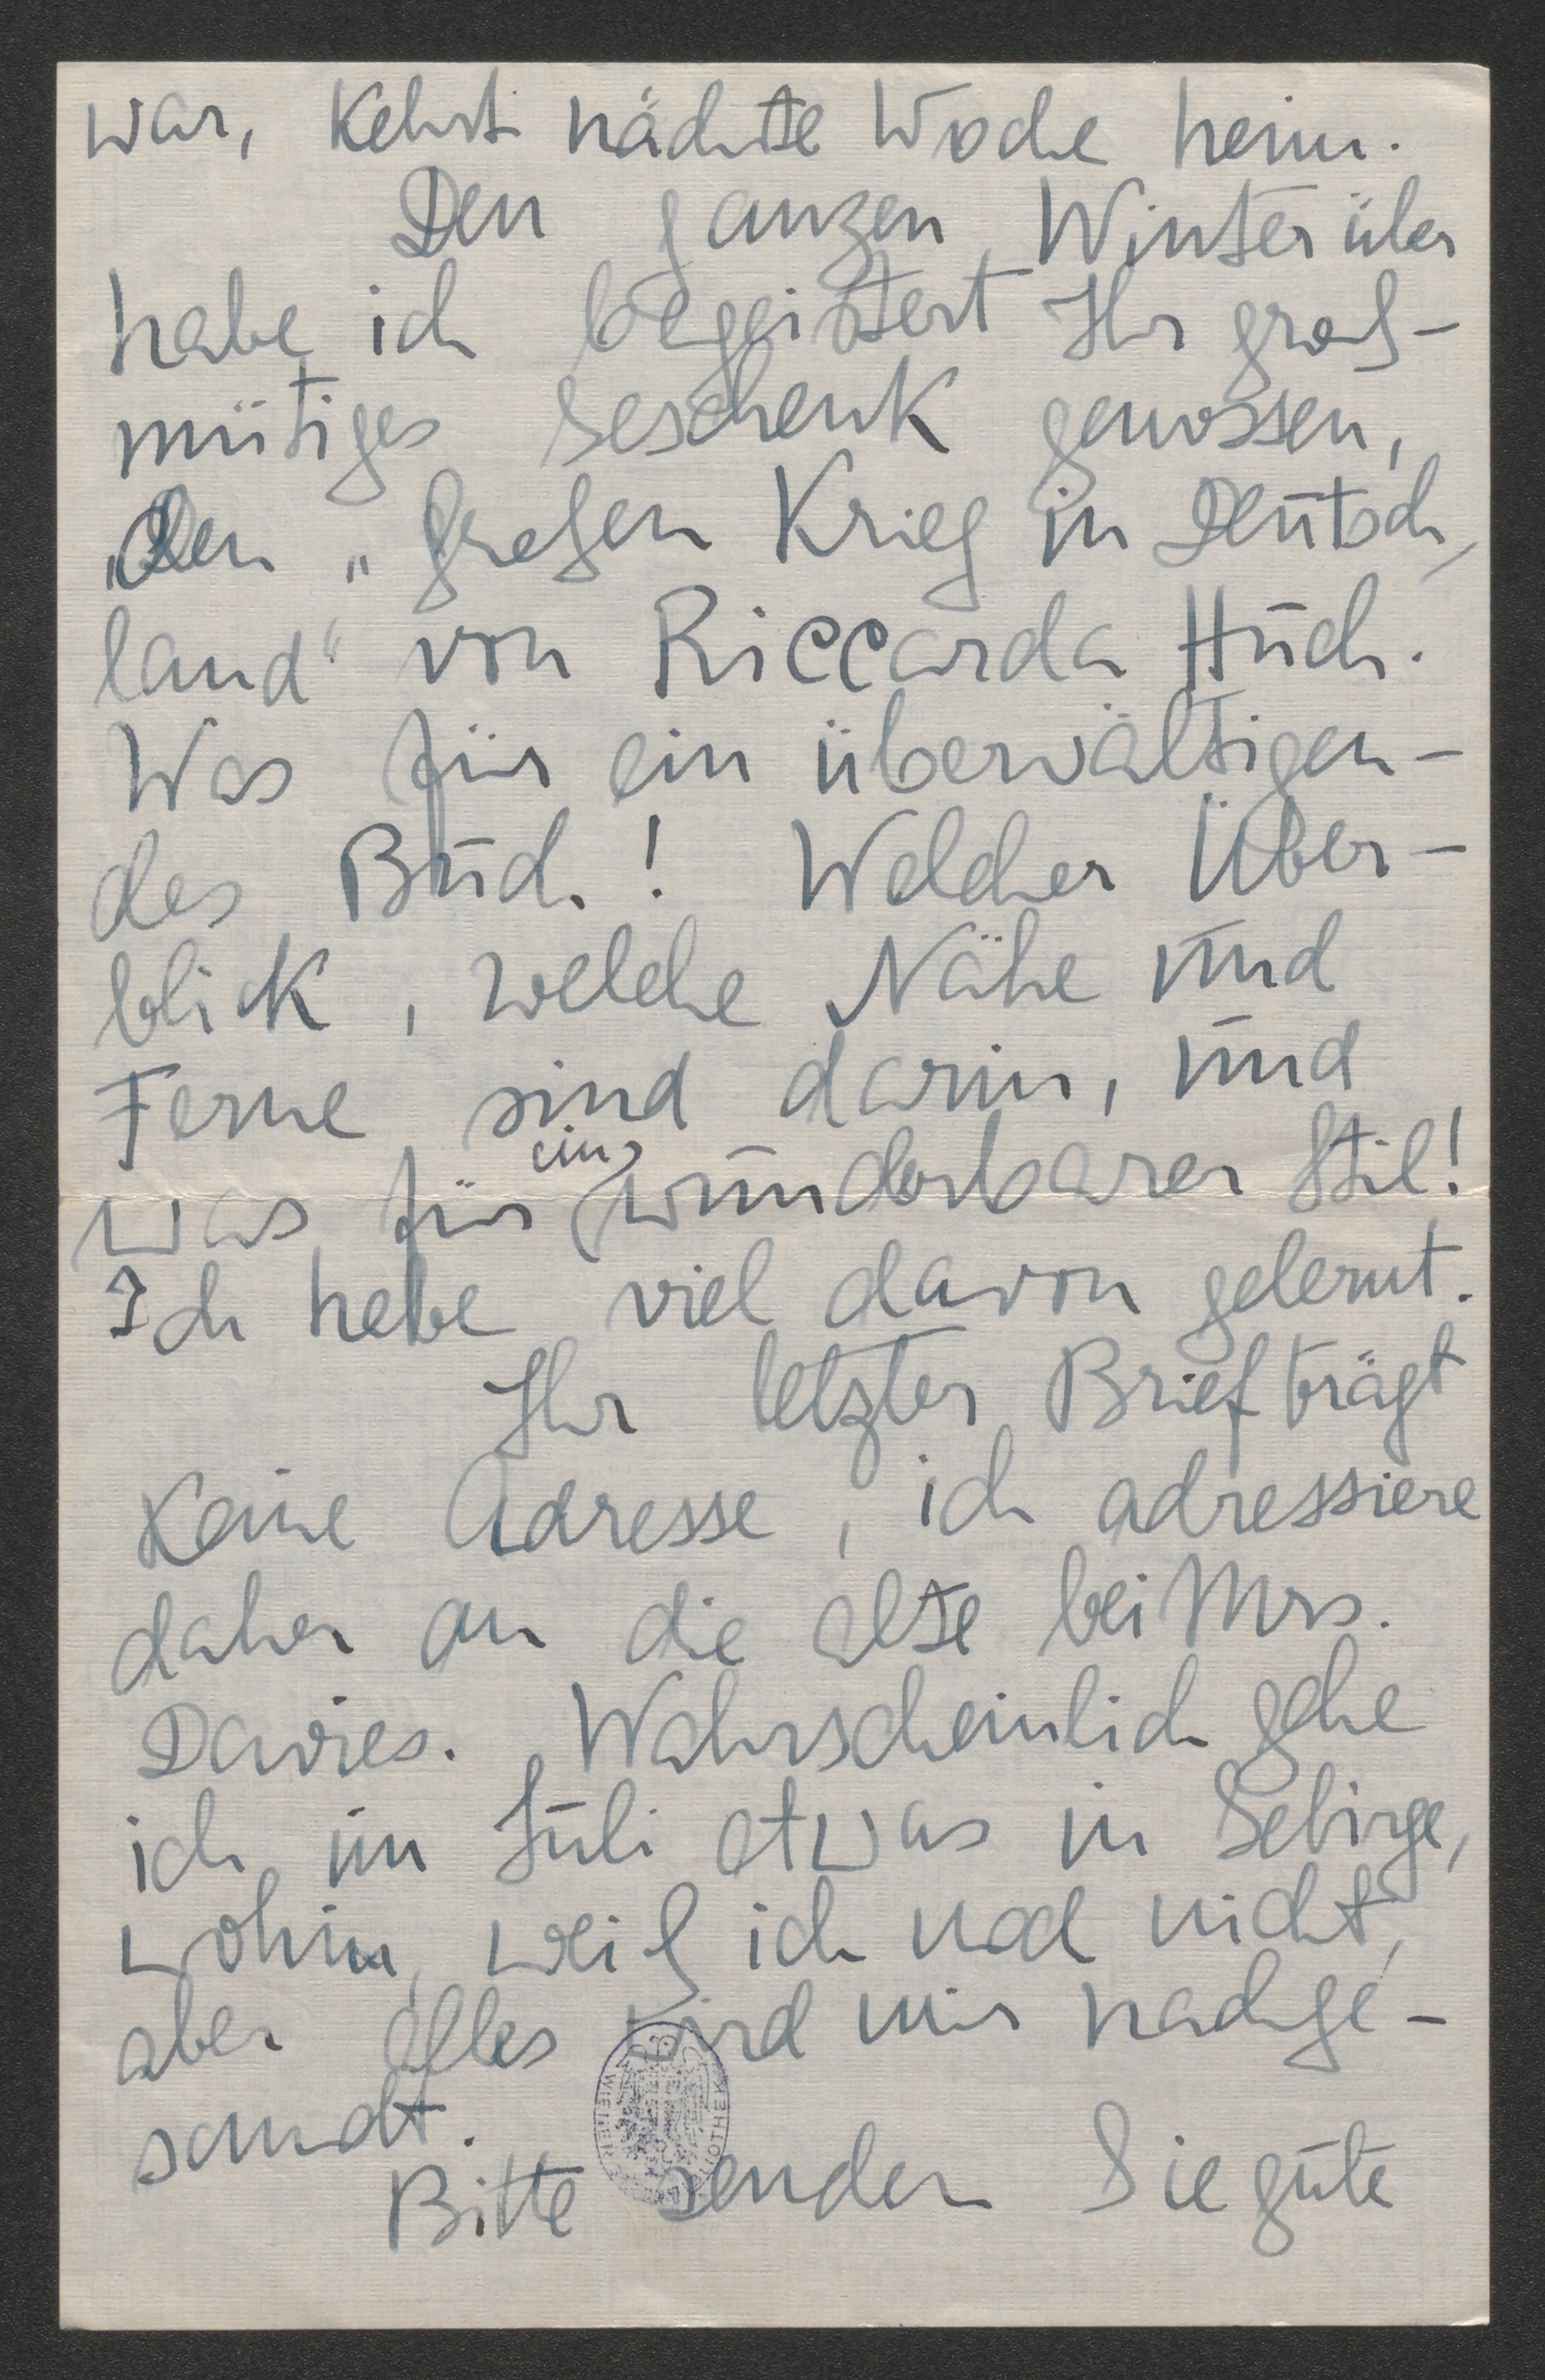 war, kehrt nächste Woche heim.
Den ganzen Winter über
habe ich begeistert Ihr groß-
mütiges Geschenk genossen,
„den „großen Krieg in Deutsch-
land“ von Riccarda Huch.
Was für ein überwältigen-
des Buch! Welcher Über-
blick, welche Nähe und
Ferne sind darin, und
was für ein wunderbarer Stil!
Ich habe viel davon gelernt.
Ihr letzter Brief trägt
keine Adresse, ich adressiere
daher an die alte bei Mrs.
Davies. Wahrscheinlich gehe
ich im Juli etwas in Gebirge,
wohin, weiß ich noch nicht,
aber Alles wird mir nachge-
sandt.
Bitte senden Sie gute